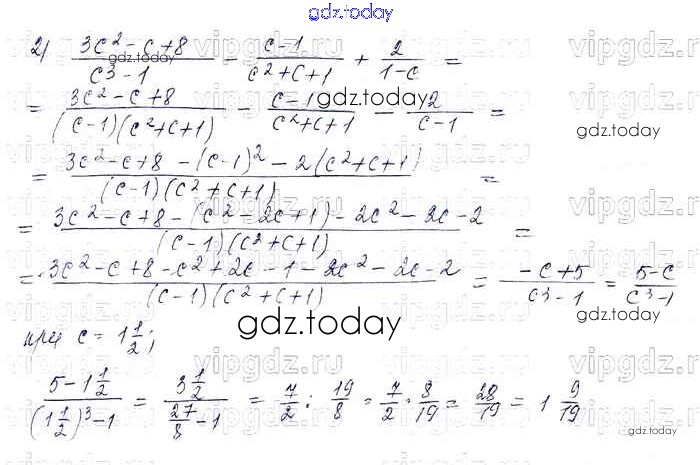 gdz.today
2) \frac{3c^2-c+8}{c^3-1} - \frac{c-1}{c^2+c+1} + \frac{2}{1-c} =
= \frac{3c^2-c+8}{(c-1)(c^2+c+1)} - \frac{c-1}{c^2+c+1} - \frac{2}{c-1} =
gdz.today
gdz.today
= \frac{3c^2-c+8-(c-1)^2-2(c^2+c+1)}{(c-1)(c^2+c+1)} =
= \frac{3c^2-c+8-(c^2-2c+1)-2c^2-2c-2}{(c-1)(c^2+c+1)} =
= \frac{3c^2-c+8-c^2+2c-1-2c^2-2c-2}{(c-1)(c^2+c+1)} = \frac{-c+5}{c^3-1} = \frac{5-c}{c^3-1}
при c = 1\frac{1}{2};
gdz.today
\frac{5-1\frac{1}{2}}{(1\frac{1}{2})^3-1} = \frac{3\frac{1}{2}}{\frac{27}{8}-1} = \frac{7}{2} : \frac{19}{8} = \frac{7}{2} \cdot \frac{8}{19} = \frac{28}{19} = 1\frac{9}{19}
gdz.today
vipgdz.ru